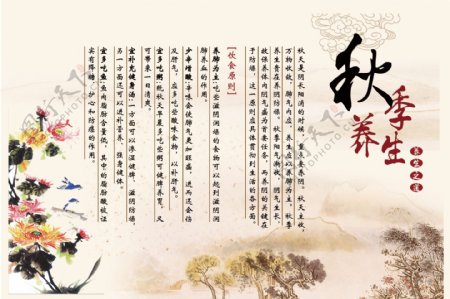 秋季养生
养生之道
秋天是阴长阳消的时候，重点要养阴。秋天主收，
万物收敛，肺气内应，养生应以养肺为主。秋季
养生贵在养阴防燥。秋季阳气渐收，阴气生长，
故保养体内阴气成为首要任务，而养阴的关键在
于防燥，这一原则应具体贯彻到生活的各方面。
【饮食原则】
养肺为主:吃些滋阴润燥的食物可以起到滋阴润
肺养血的作用。
少辛增酸:辛味会使肺气更加旺盛，进而还会伤
及肝气，应多吃些酸味食物，以补肝气。
宜多吃粥:既秋天早晨多吃些粥可健脾养胃，又
可带来一日清爽。
宜补充健身汤:一方面可以渗湿健脾、滋阴防燥，
另一方面还可以进补营养、强身健体。
宜多吃鱼:鱼肉脂肪含量低，其中的脂肪酸被证
实有降糖、护心和防癌的作用。